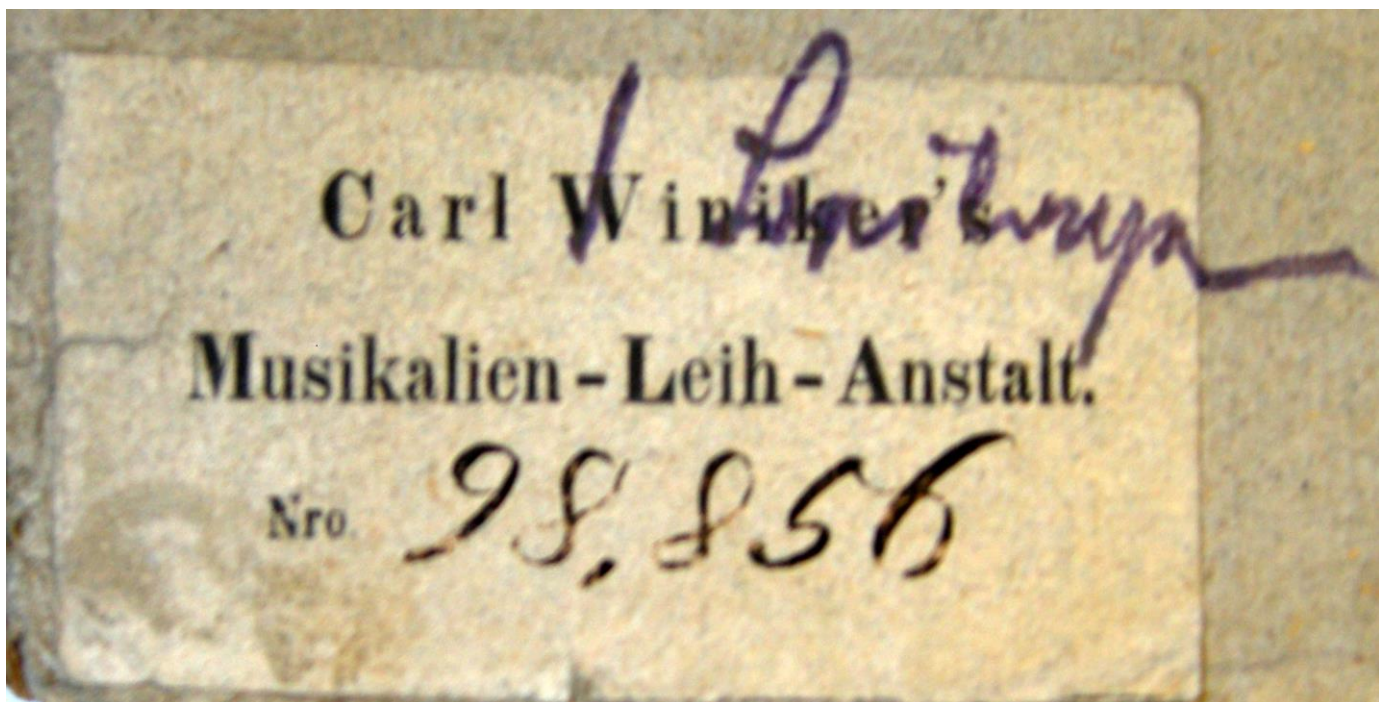 Carl Winiker's
Musikalien-Leih-Anstalt.
Nro. 98,856